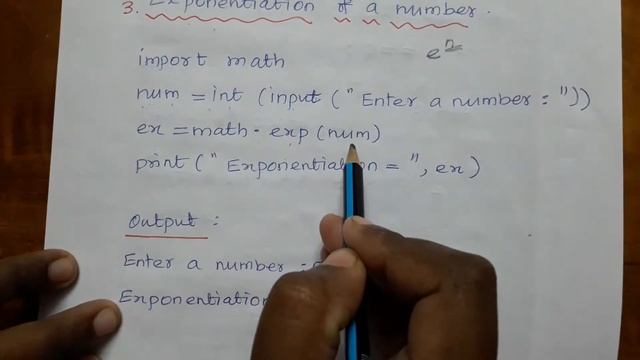 3. Exponentiation of a number.
import math
eⁿ
num = int (input (" Enter a number : "))
ex = math . exp (num)
print (" Exponentiation = ", ex)
Output :
Enter a number :
Exponentiation